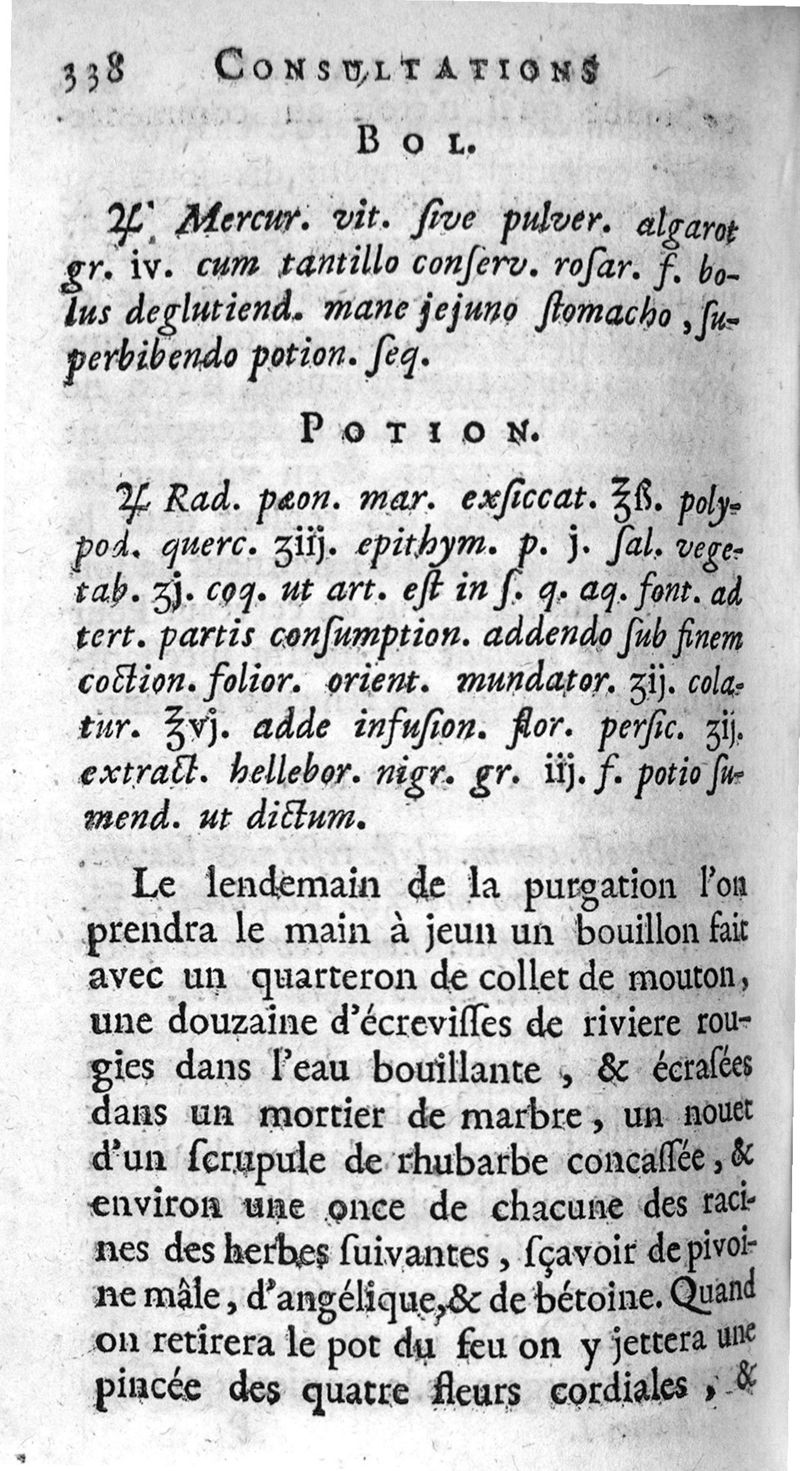 338 CONSULTATIONS
BOL.
℞ Mercur. vit. ſive pulver. algarot
gr. iv. cum tantillo conſerv. roſar. f. bo-
lus deglutiend. mane jejuno ſtomacho, ſu-
perbibendo potion. ſeq.
POTION.
℞ Rad. pæon. mar. exſiccat. ℥ß. poly-
pod. querc. ʒiij. epithym. p. j. ſal. vege-
tab. ʒj. coq. ut art. eſt in ſ. q. aq. font. ad
tert. partis conſumption. addendo ſub finem
coction. folior. orient. mundator. ʒij. cola-
tur. ℥vj. adde infuſion. flor. perſic. ʒij.
extract. hellebor. nigr. gr. iij. f. potio ſu-
mend. ut dictum.
Le lendemain de la purgation l'on
prendra le main à jeun un bouillon fait
avec un quarteron de collet de mouton,
une douzaine d'écreviſſes de riviere rou-
gies dans l'eau bouillante, & écraſées
dans un mortier de marbre, un nouet
d'un ſcrupule de rhubarbe concaſſée, &
environ une once de chacune des raci-
nes des herbes ſuivantes, ſçavoir de pivoi-
ne mâle, d'angélique, & de bétoine. Quand
on retirera le pot du feu on y jettera une
pincée des quatre fleurs cordiales, &